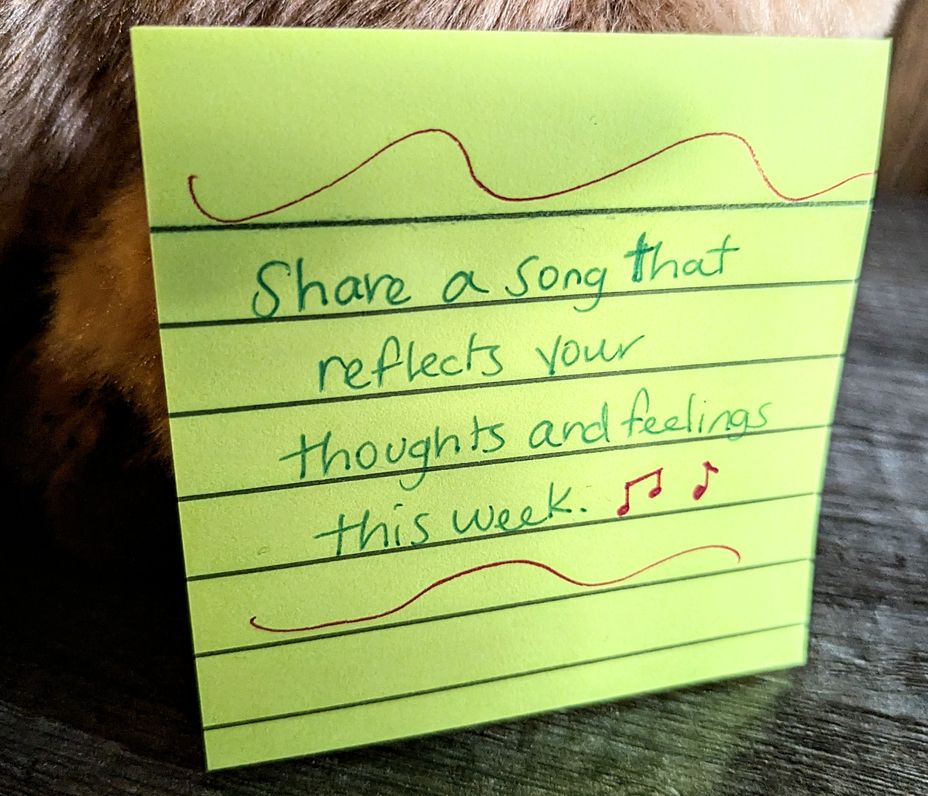 Share a song that
reflects your
thoughts and feelings
this week.